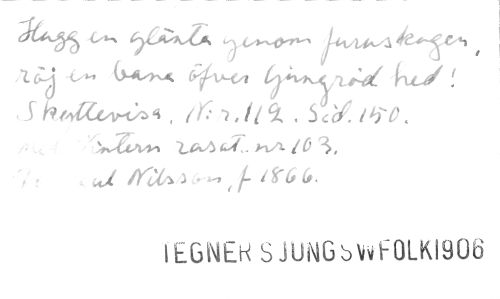 Hugg en glänta genom furuskogen,
röj en bana öfver ljungröd hed!
Skyttevisa. N:r. 112. Sid. 150.
Vintern rasat. nr 103.
Nilsson, f 1866.
TEGNER SJUNG SWFOLK1906